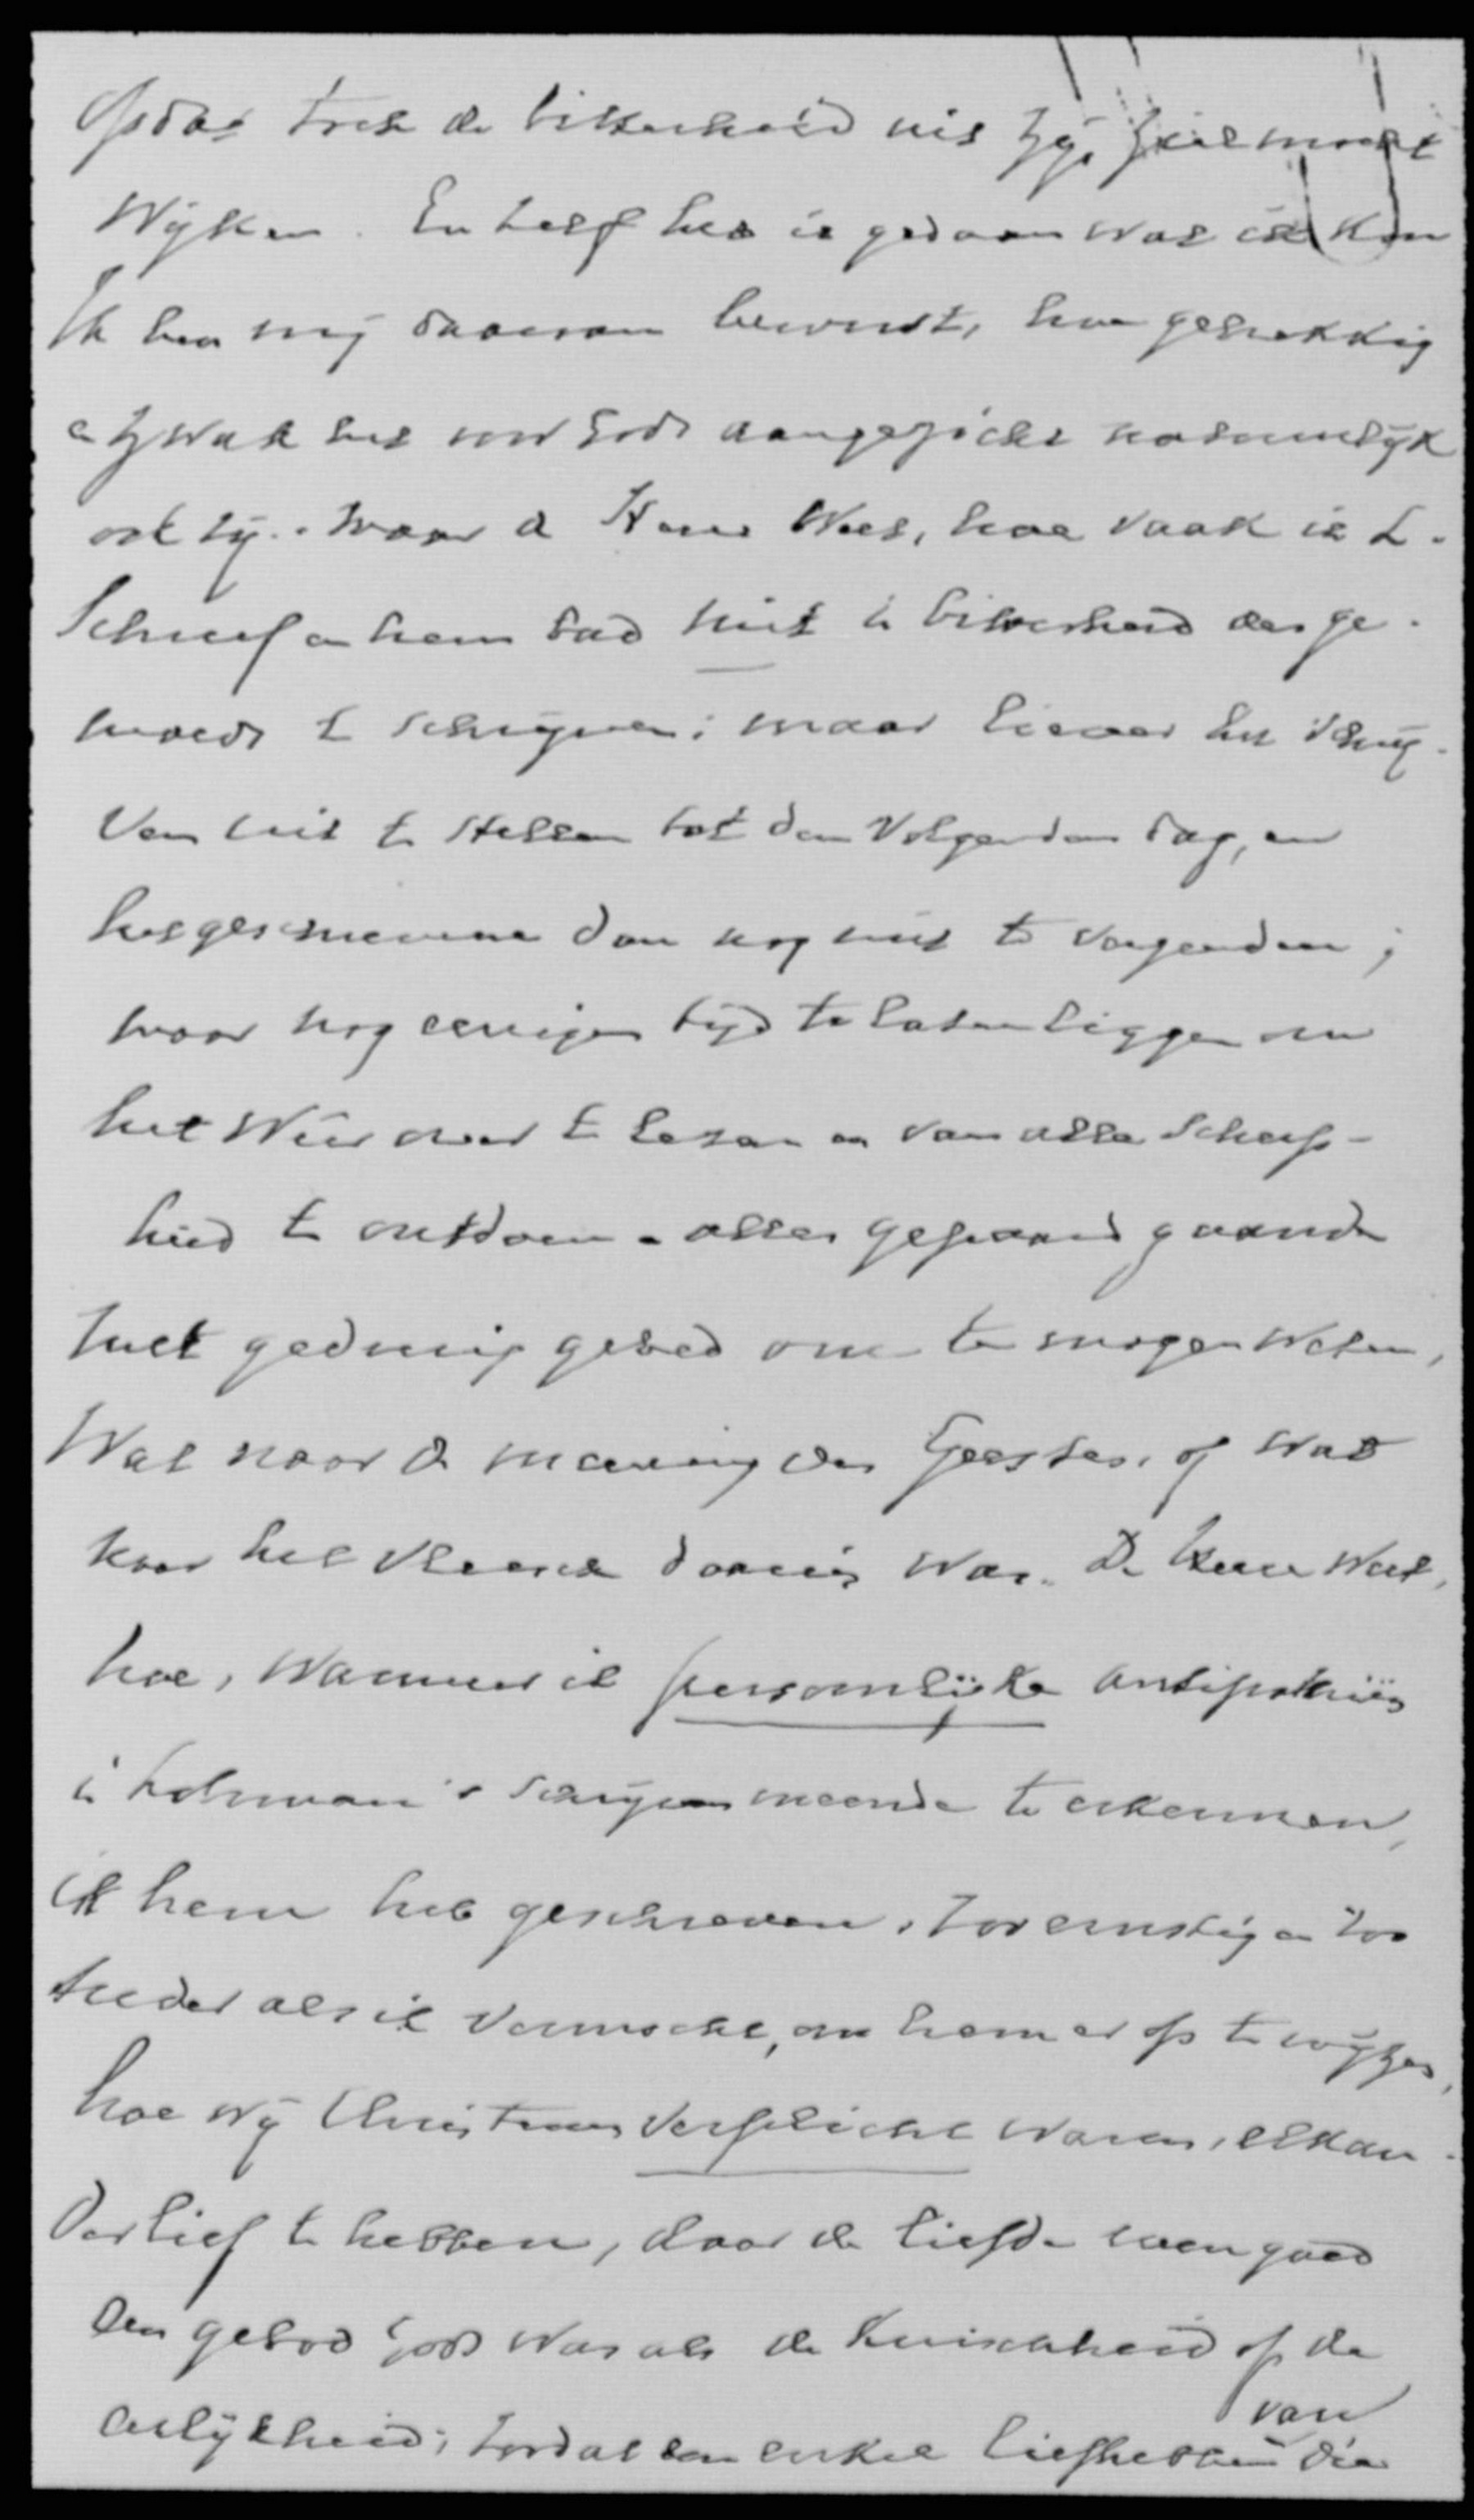 opdat toch de bitterheid uit zijn ziel mocht
wijken. En zelf heb ik gedaan wat ik kon
Ik ben mij daarvan bewust, hoe gebrekkig
en zwak het voor Gods aangezicht natuurlijk
ook zij. Maar de Heere weet, hoe vaak ik L.
schreef en hem bad niet in bitterheid des ge-
moeds te schrijven; maar liever het schrij-
ven uit te stellen tot den volgenden dag, en
het geschrevene dan nog niet te verzenden;
maar nog eenigen tijd te laten liggen om
het weer over te lezen en van alle scherp-
heid te ontdoen - alles gepaard gaande
met gedurig gebed om te mogen weten,
wat naar de meening des Geestes, of wat
naar het vleesch daarin was. De Heere weet,
hoe, wanneer ik persoonlijke antipathiën
in Lohman's schrijven meende te erkennen,
ik hem heb geschreven, zoo ernstig en zoo
teeder als ik vermocht, om hem er op te wijzen,
hoe wij Christenen verplicht waren, elkan-
der lief te hebben, daar de liefde even goed
een gebod Gods was als de kuischheid of de
eerlijkheid; zoodat een enkel liefhebben van die